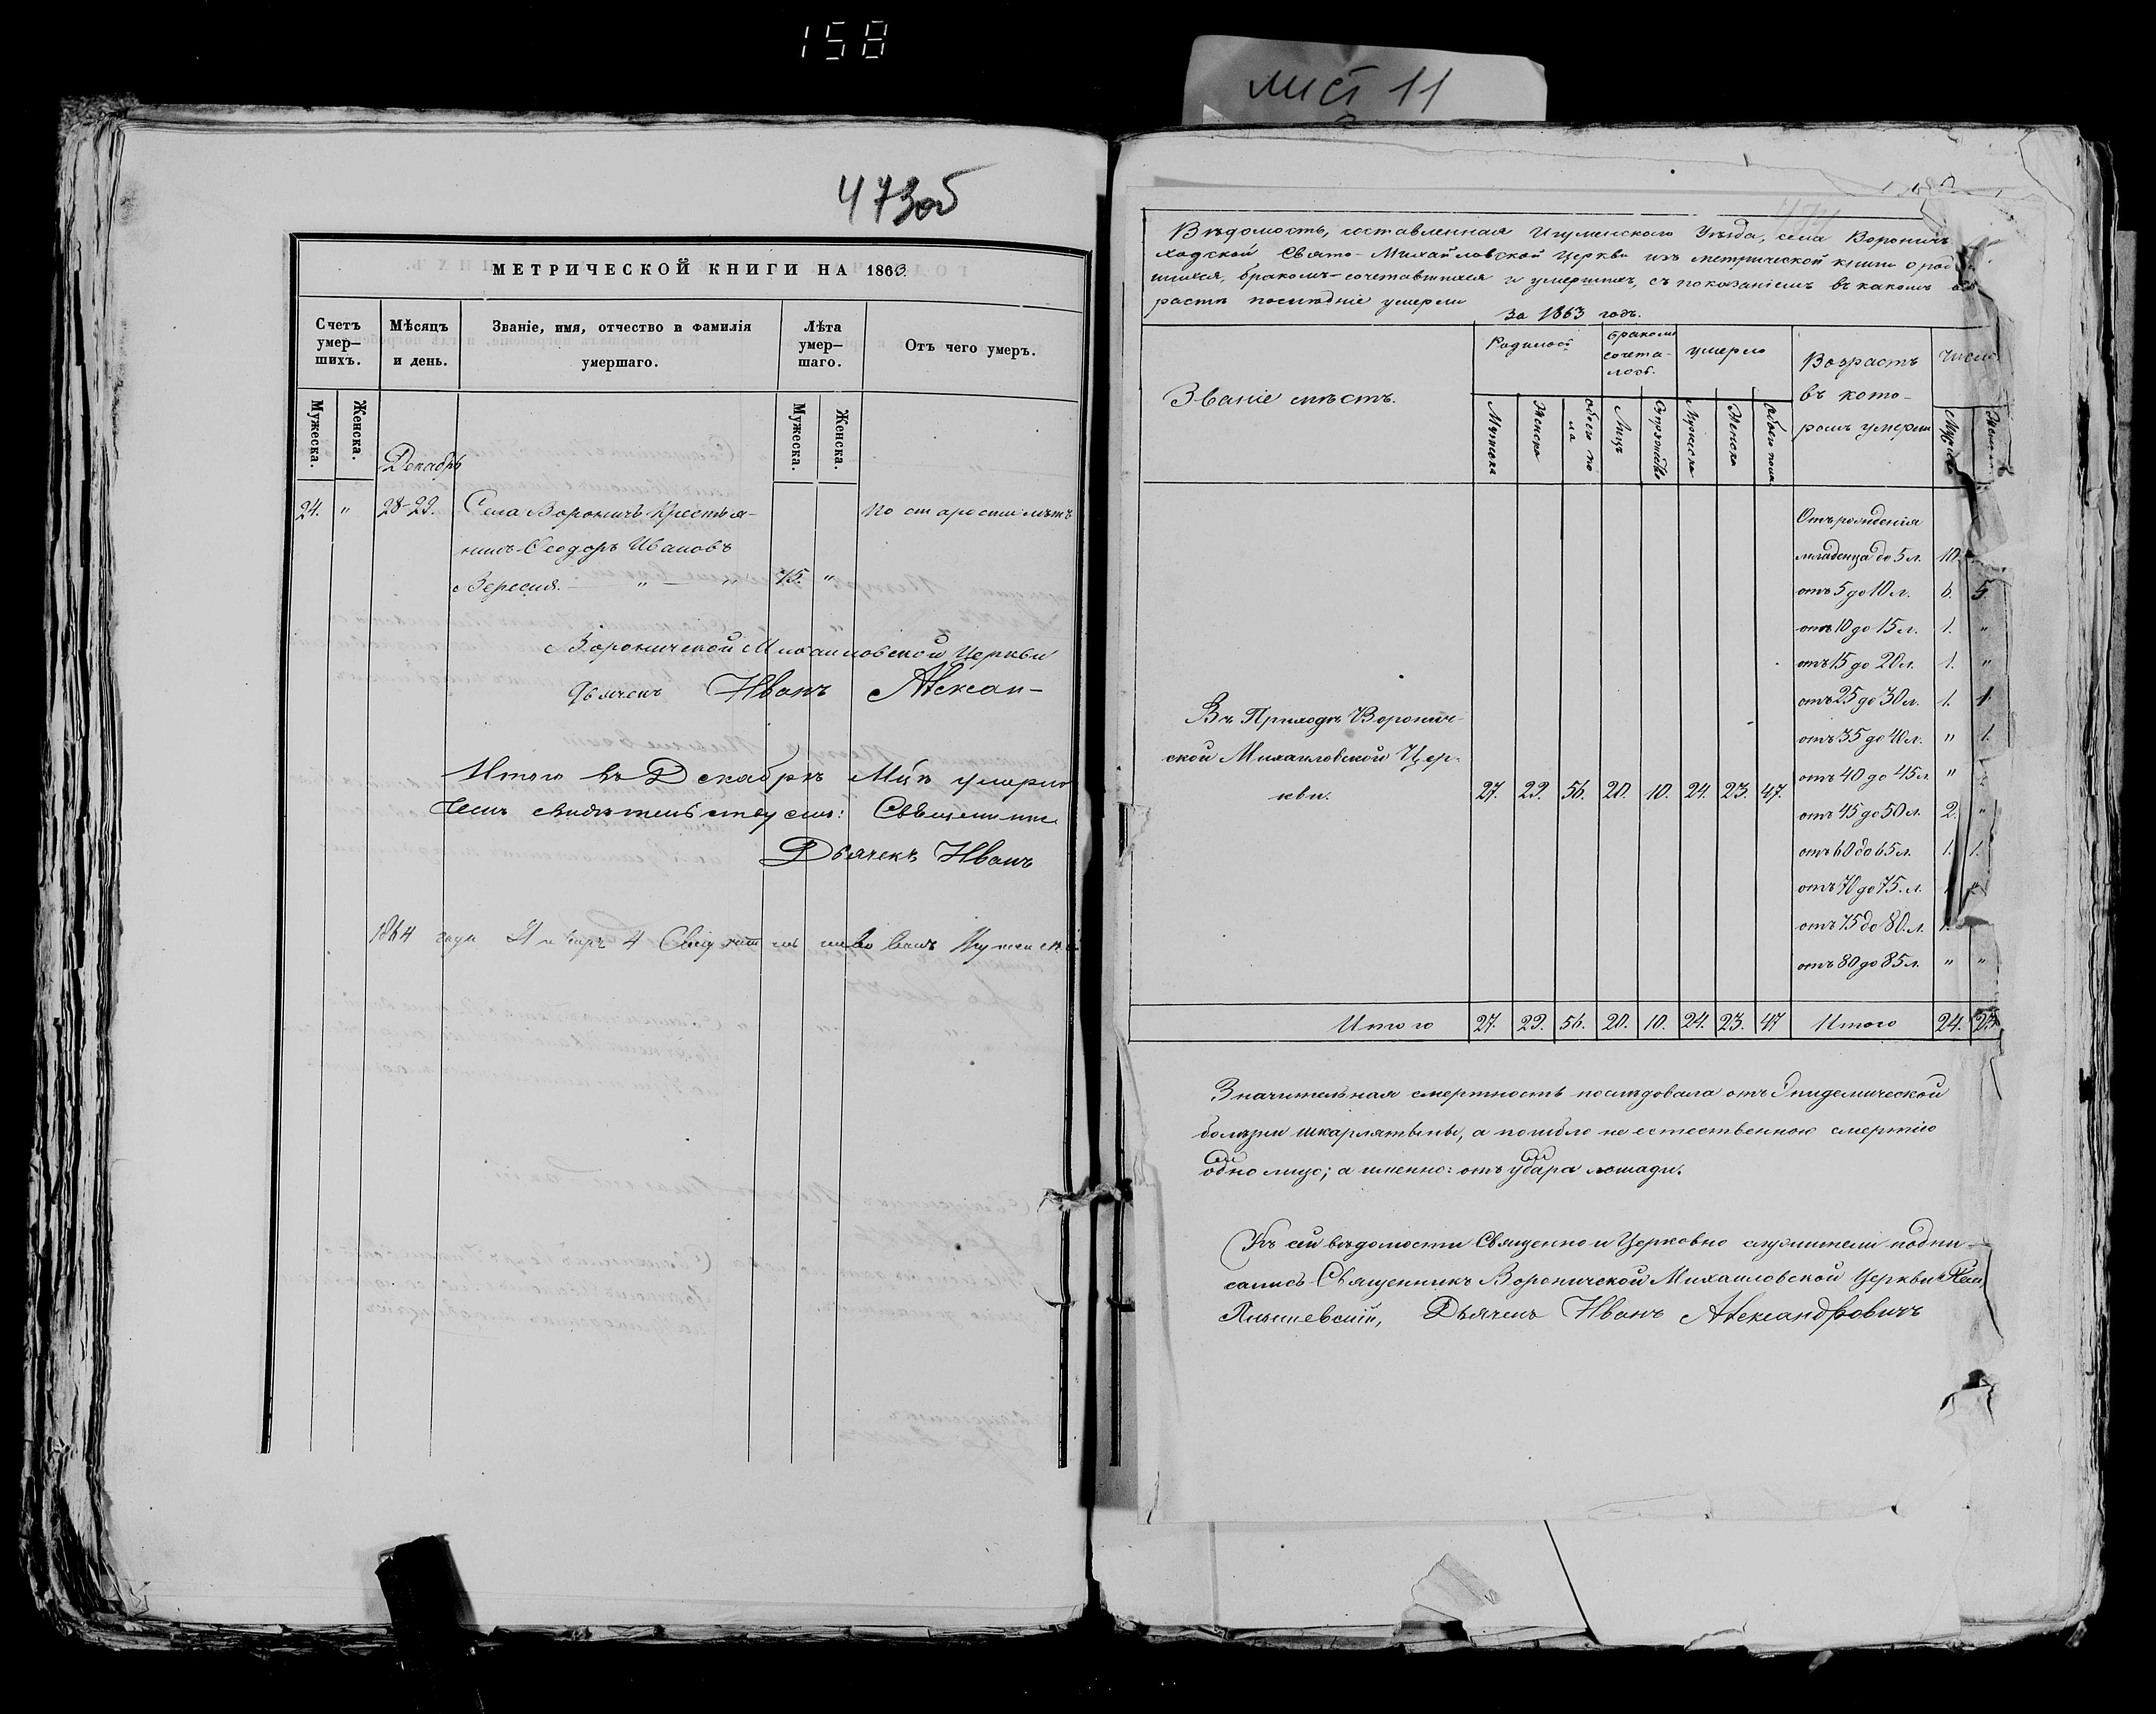 158
лист 11
473об
МЕТРИЧЕСКОЙ КНИГИ НА 1863.
Счетъ умер— шихъ.
Мѣсяцъ и день.
Званіе, имя, отчество и фамилія умершаго.
Лѣта умер— шаго.
Отъ чего умеръ.
Мужеска.
Женска.
Мужеска.
Женска.
Декабрь
24. " 28-29. Села Вороничъ Крестья- По старости лѣтъ
нинъ Ѳеодоръ Ивановъ
Вересня. — " — " 75. "
Вороничской Михаиловской Церкви
Дьячекъ Иванъ Алексан-
Итого въ Декабрѣ М-цѣ умерло
Чемъ свидѣтельствуемъ: Священникъ
Дьячекъ Иванъ
1864 года Января 4
474
Вѣдомость, составленная Игуменскаго Уѣзда, села Вороничъ
ходской Свято-Михайловской Церкви изъ метрической книги о род
шихся, бракомъ-сочетавшихся и умершихъ, съ показаніемъ въ какомъ воз
растѣ послѣдніе умерли
за 1863 годъ.
Званіе мѣстъ.
Родилось
бракомъ сочета- лось.
умерло
Возрастъ
въ кото-
ромъ умерли
Число
Мужска
Женска
обоего по ла
Лицъ
Супружествъ
Мужеска
Женска
Обоего пола
Мужеска
Женска
Отъ рожденія
младенца до 5 л. 10.
отъ 5 до 10 л. 6. 5.
отъ 10 до 15 л. 1. "
отъ 15 до 20 л. 1. "
отъ 25 до 30 л. 1. 1.
отъ 35 до 40 л. " 1.
отъ 40 до 45 л. "
отъ 45 до 50 л. 2. "
отъ 60 до 65 л. 1. 1.
отъ 70 до 75 л.
отъ 75 до 80 л. 1.
отъ 80 до 85 л. " "
Въ Приходѣ Воронич-
ской Михаиловской Цер-
кви. 27. 29. 56. 20. 10. 24. 23. 47.
Итого 27. 29. 56. 20. 10. 24. 23. 47 Итого 24. 23
Значительная смертность послѣдовала отъ Эпидемической
болѣзни шкарлятыны, а погибло не естественною смертію
одно лицо; а именно: отъ удара лошади.
Къ сей вѣдомости Священно и Церковно служители подпи-
сались Священникъ Вороничской Михаиловской Церкви
Дьячекъ Иванъ Александровичъ